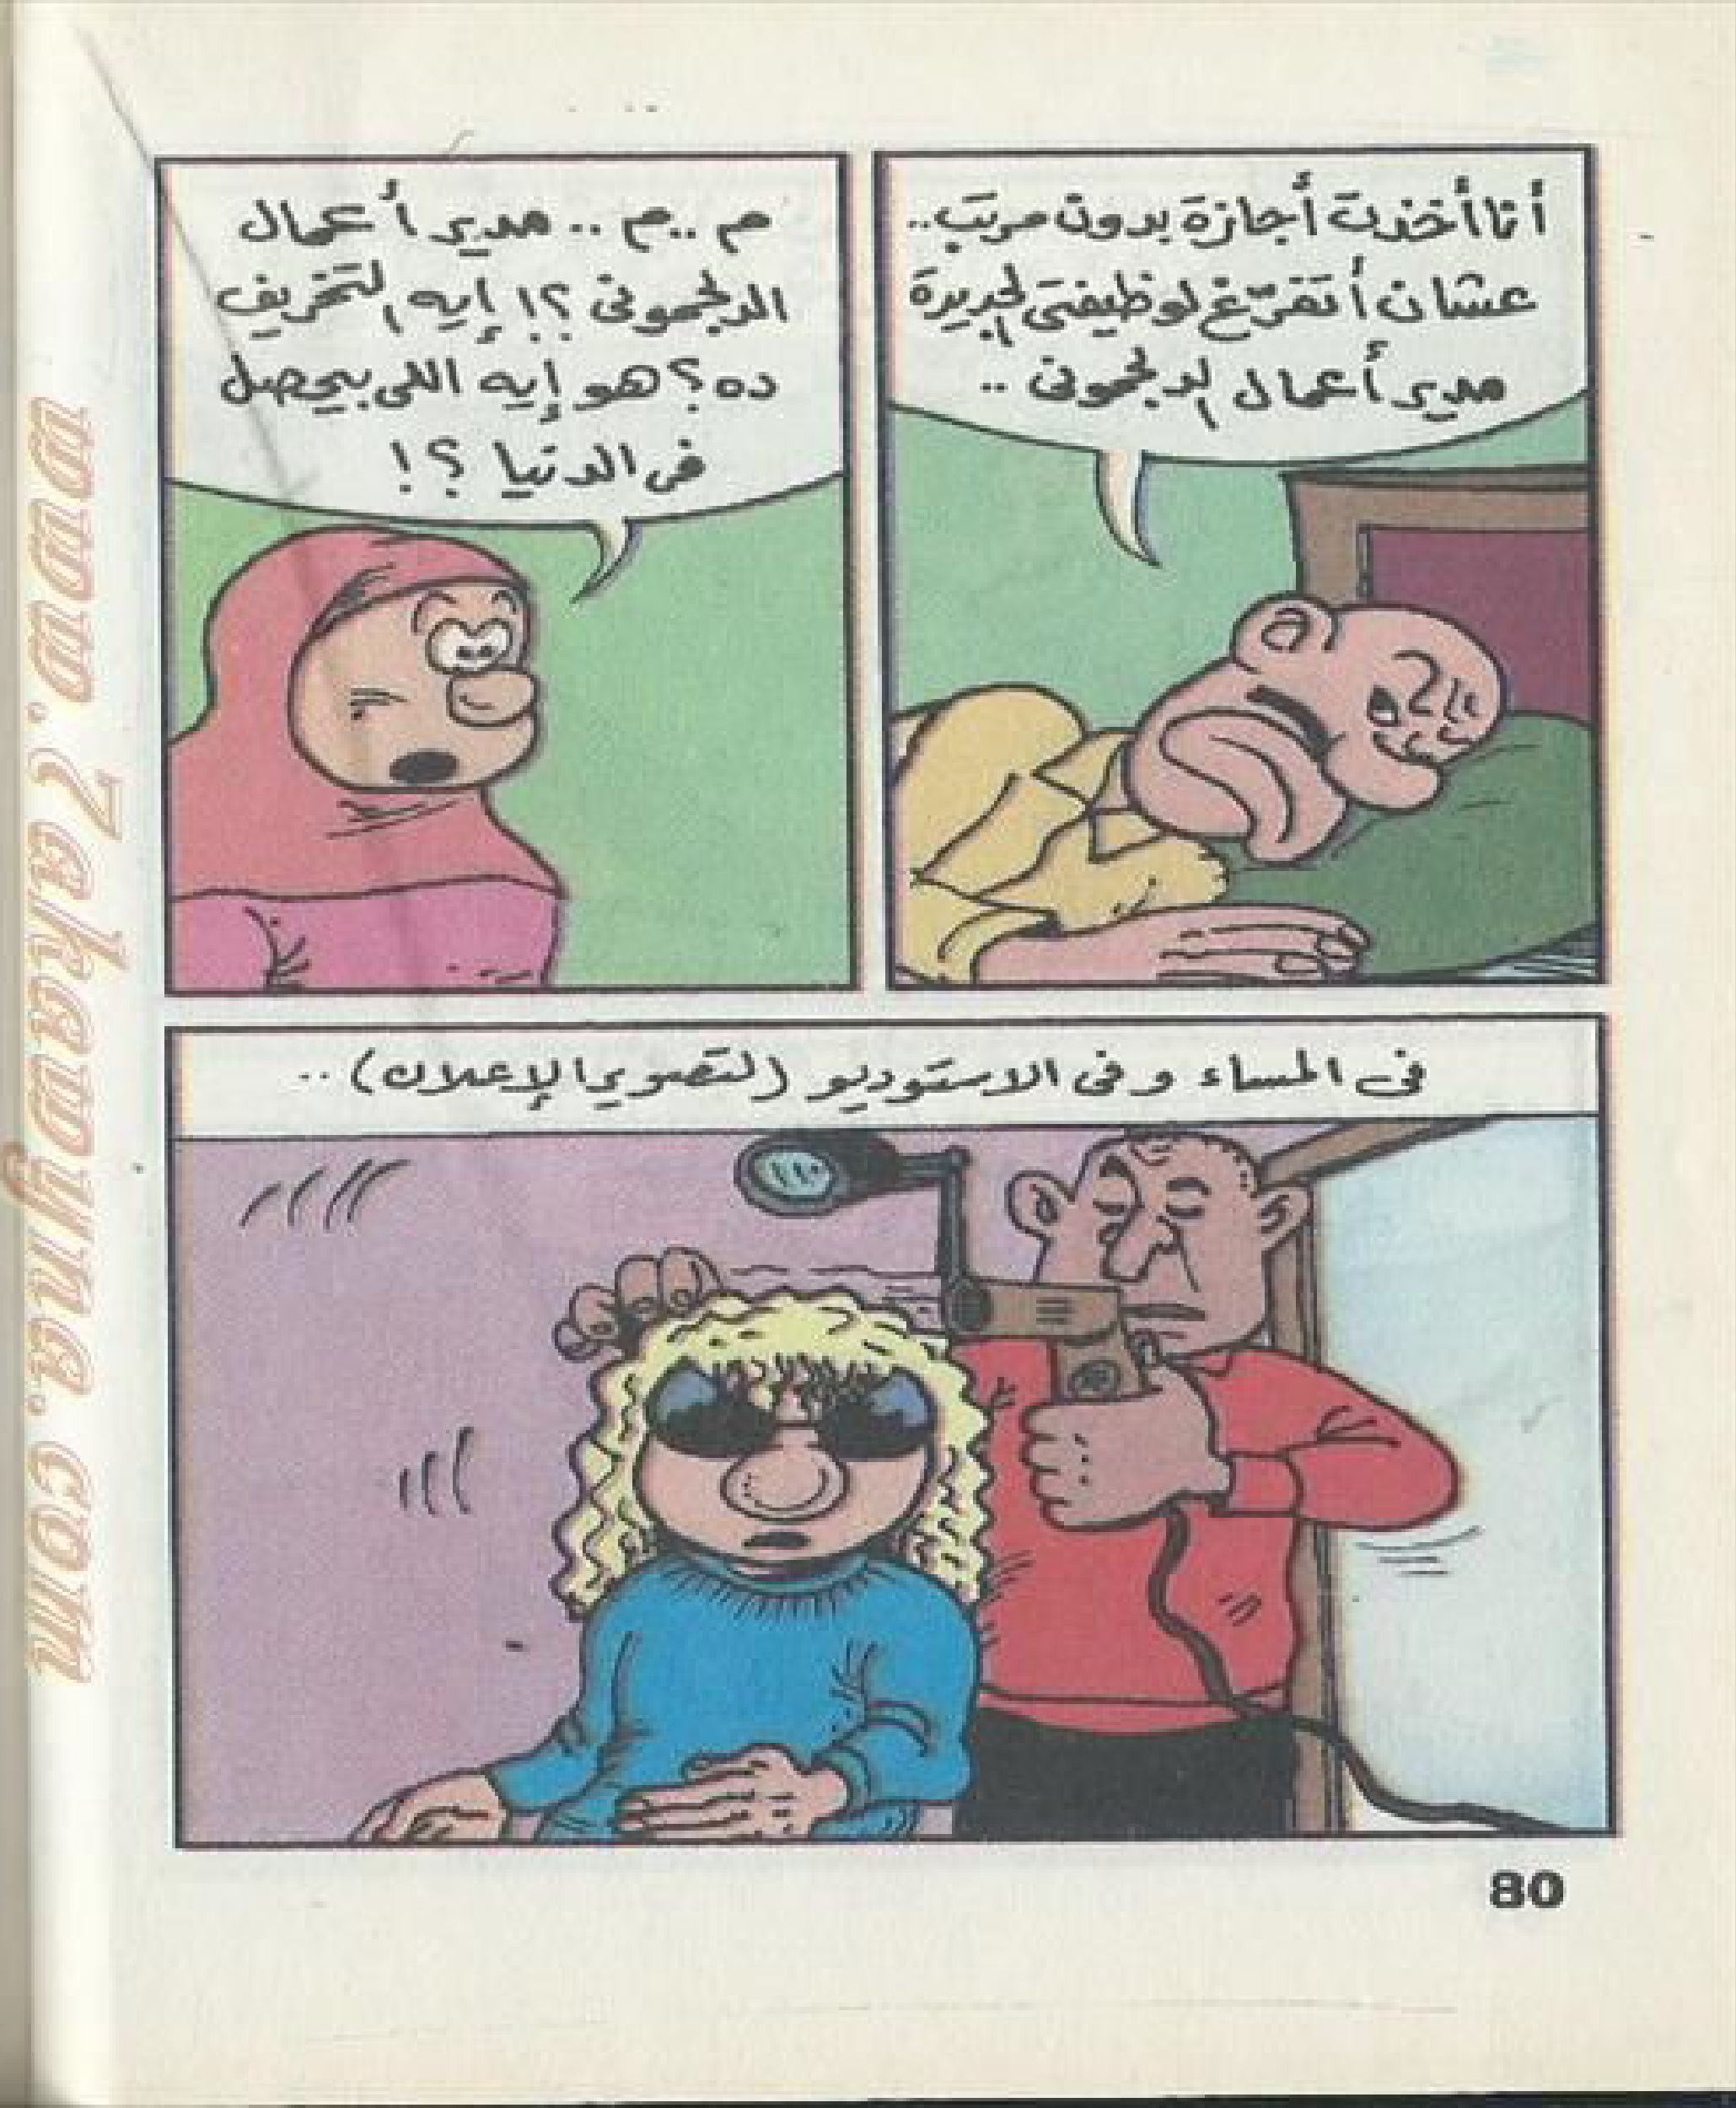 أنا أخذت أجازة بدون مرتب..
عشان أتفرّغ لوظيفتى الجديدة
مدير أعمال الدلجمونى ..
م .. م .. مدير أعمال
الدلجمونى ؟! إيه التخريف
ده ؟ هو إيه اللى بيحصل
فى الدنيا ؟!
فى المساء وفى الاستوديو (لتصوير الإعلان) ..
80
www.7akawyna.com